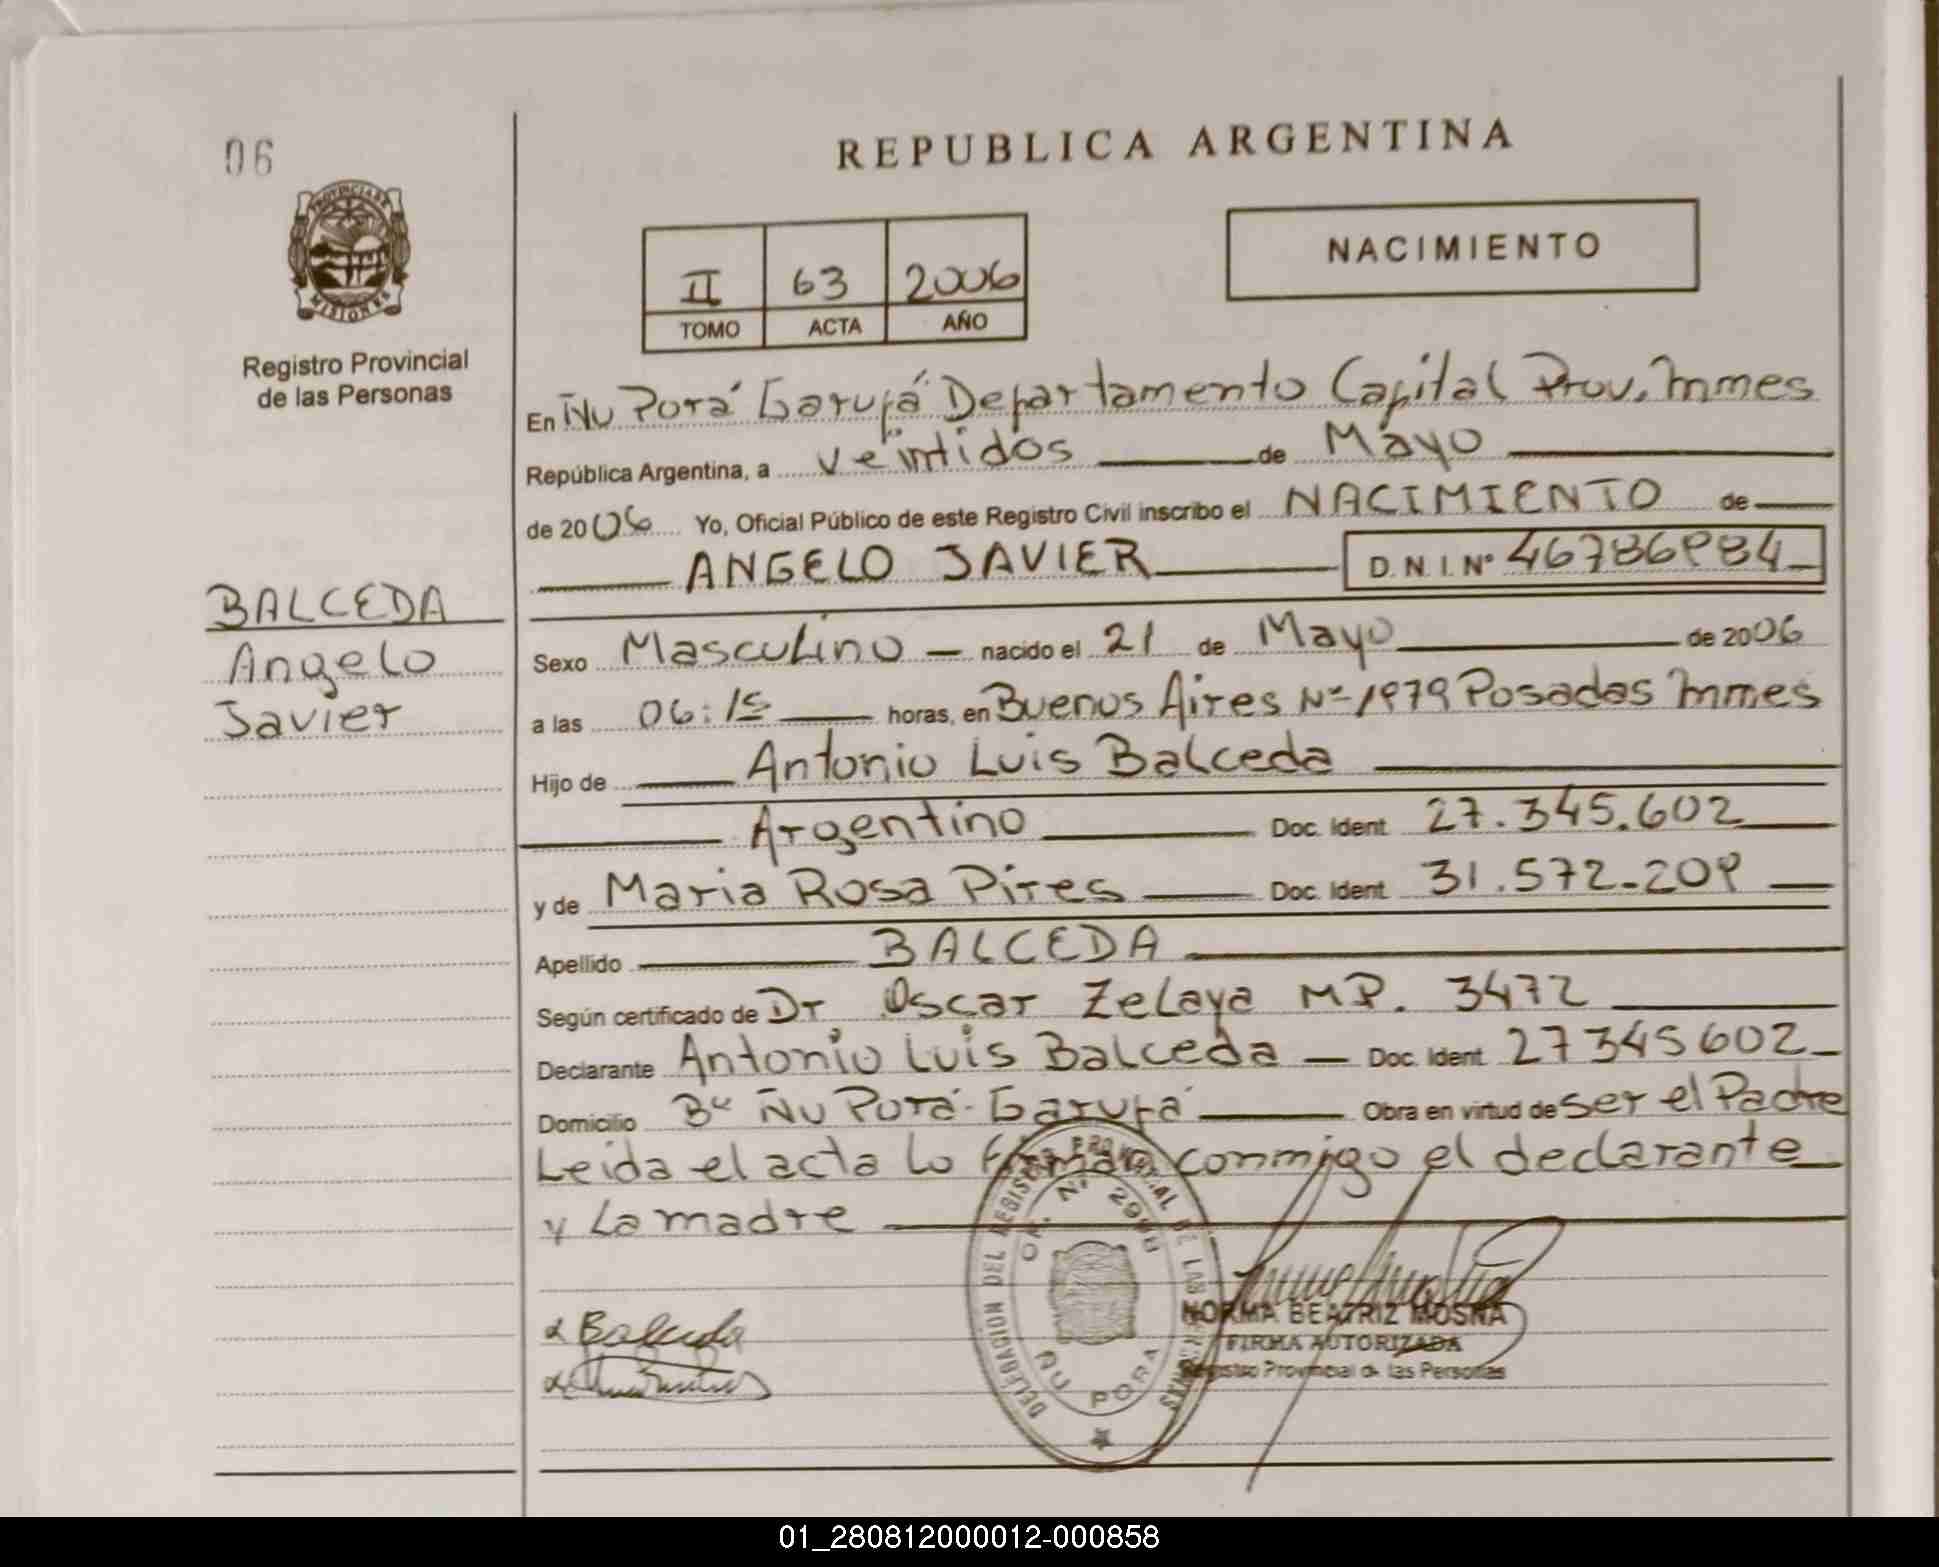 06
REPUBLICA ARGENTINA
PROVINCIA DE
MISIONES
Registro Provincial
de las Personas
II 63 2006
TOMO ACTA AÑO
NACIMIENTO
En Ñu Porá Garupá Departamento Capital Prov. Mnes
República Argentina, a veintidos de Mayo
de 2006 Yo, Oficial Público de este Registro Civil inscribo el NACIMIENTO de
ANGELO JAVIER D.N.I. Nº 46786984
BALCEDA
Angelo
Javier
Sexo Masculino nacido el 21 de Mayo de 2006
a las 06:15 horas, en Buenos Aires Nº 1979 Posadas Mnes
Hijo de Antonio Luis Balceda
Argentino Doc. Ident 27.345.602
y de Maria Rosa Pires Doc. Ident. 31.572.209
Apellido BALCEDA
Según certificado de Dr Oscar Zelaya MP. 3472
Declarante Antonio Luis Balceda Doc. Ident. 27345602
Domicilio Bº Ñu Porá - Garupá Obra en virtud de ser el Padre
Leida el acta lo firman conmigo el declarante
y La madre
DELEGACION DEL REGISTRO PROVINCIAL DE LAS PERSONAS
ÑU PORA
Balceda
NORMA BEATRIZ MOSNA
FIRMA AUTORIZADA
Registro Provincial de las Personas
01_280812000012-000858